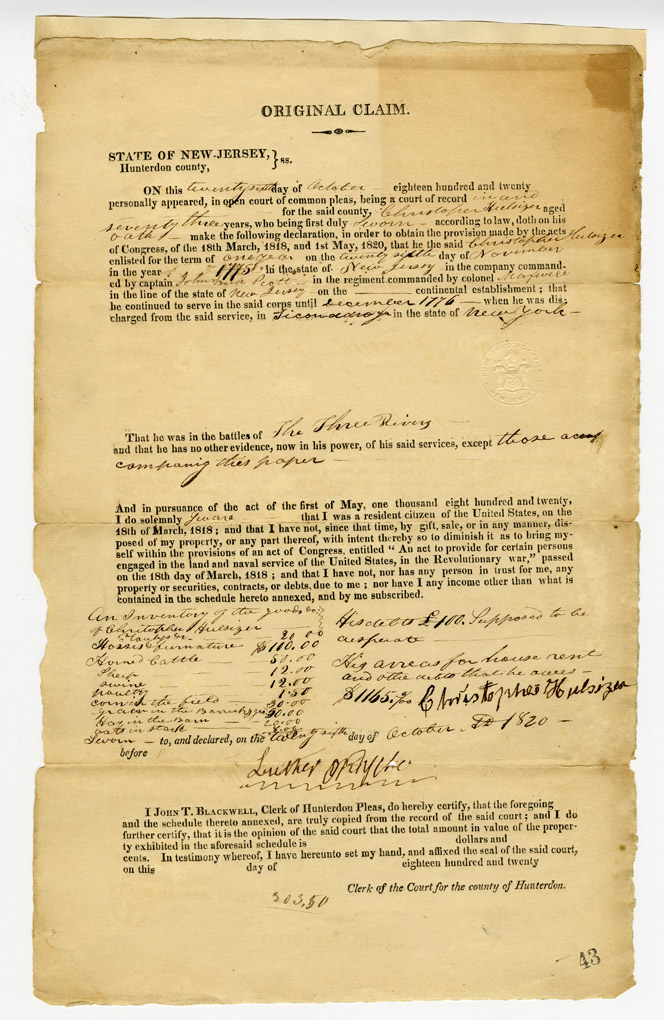 ORIGINAL CLAIM.
STATE OF NEW-JERSEY, } ss.
Hunterdon county,
ON this twenty sixth day of October eighteen hundred and twenty
personally appeared, in open court of common pleas, being a court of record in and
for the said county, Christopher Hulsizer aged
seventy three years, who being first duly Sworn according to law, doth on his
oath make the following declaration, in order to obtain the provision made by the acts
of Congress, of the 18th March, 1818, and 1st May, 1820, that he the said Christopher Hulsizer
enlisted for the term of one year on the twenty sixth day of November
in the year 1775 in the state of New Jersey in the company command-
ed by captain John in the regiment commanded by colonel
in the line of the state of New Jersey on the continental establishment; that
he continued to serve in the said corps until December 1776 when he was dis-
charged from the said service, in in the state of New York
That he was in the battles of The Three Rivers
and that he has no other evidence, now in his power, of his said services, except those accom
companig this paper
And in pursuance of the act of the first of May, one thousand eight hundred and twenty,
I do solemnly Sware that I was a resident citizen of the United States, on the
18th of March, 1818; and that I have not, since that time, by gift, sale, or in any manner, dis-
posed of my property, or any part thereof, with intent thereby so to diminish it as to bring my-
self within the provisions of an act of Congress, entitled "An act to provide for certain persons
engaged in the land and naval service of the United States, in the Revolutionary war," passed
on the 18th day of March, 1818; and that I have not, nor has any person in trust for me, any
property or securities, contracts, or debts, due to me; nor have I any income other than what is
contained in the schedule hereto annexed, and by me subscribed.
An Inventory of the goods &c
of Christopher Hulsizer
20.00
Horses & furnature $110.00
Horned Cattle 50.00
Sheep 12.00
swine 12.00
poultry 1.50
corn in the field 30.00
grain in the Barrick &c 50.00
Hay in the Barn 20.00
oats in stack
His debts £100. Supposed to be
desperate
His areas for house rent
and other debts that he owes
$1165.
Christopher Hulsizer
Sworn to, and declared, on the twenty sixth day of October 1820
before
I JOHN T. BLACKWELL, Clerk of Hunterdon Pleas, do hereby certify, that the foregoing
and the schedule thereto annexed, are truly copied from the record of the said court; and I do
further certify, that it is the opinion of the said court that the total amount in value of the proper-
ty exhibited in the aforesaid schedule is dollars and
cents. In testimony whereof, I have hereunto set my hand, and affixed the seal of the said court,
on this day of eighteen hundred and twenty
Clerk of the Court for the county of Hunterdon.
303.50
43